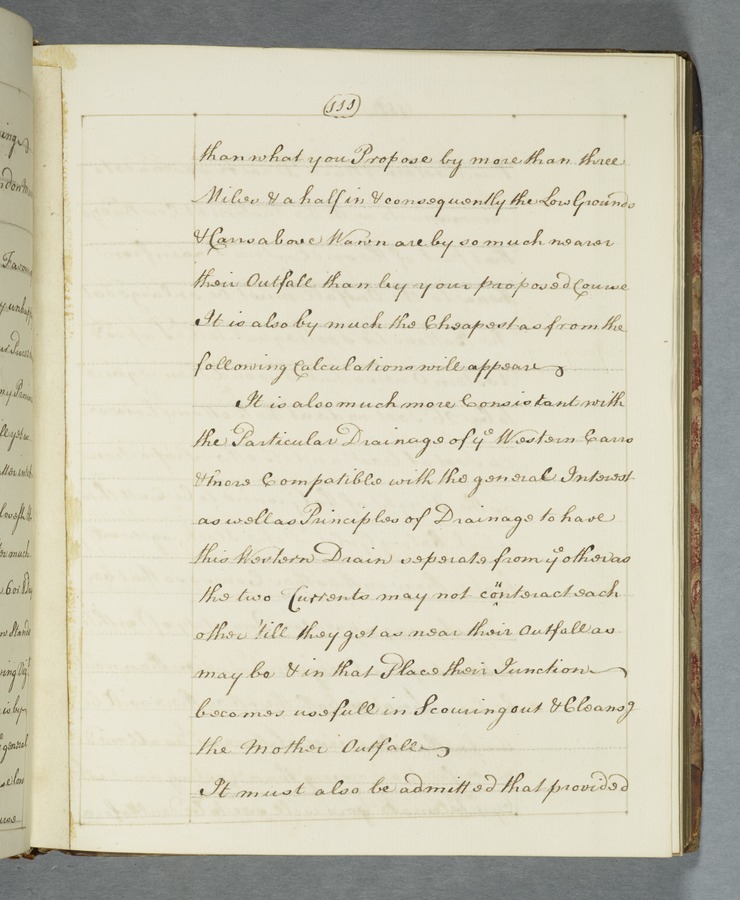 111
than what you Propose by more than three
Miles & a half in & consequently the Low Grounds
& Carrs above Wawn are by so much nearer
their Outfall than by your proposed Course
It is also by much the Cheapest as from the
following Calculations will appear
It is also much more Consistant with
the Particular Drainage of ye Western Carrs
& more Compatible with the general Interest
as well as Principles of Drainage to have
this Western Drain seperate from ye other as
the two Currents may not conteract each
other 'till they get as near their Outfall as
may be & in that Place their Junction
becomes usefull in Scouring out & Cleansg
the Mother Outfall
It must also be admitted that provided